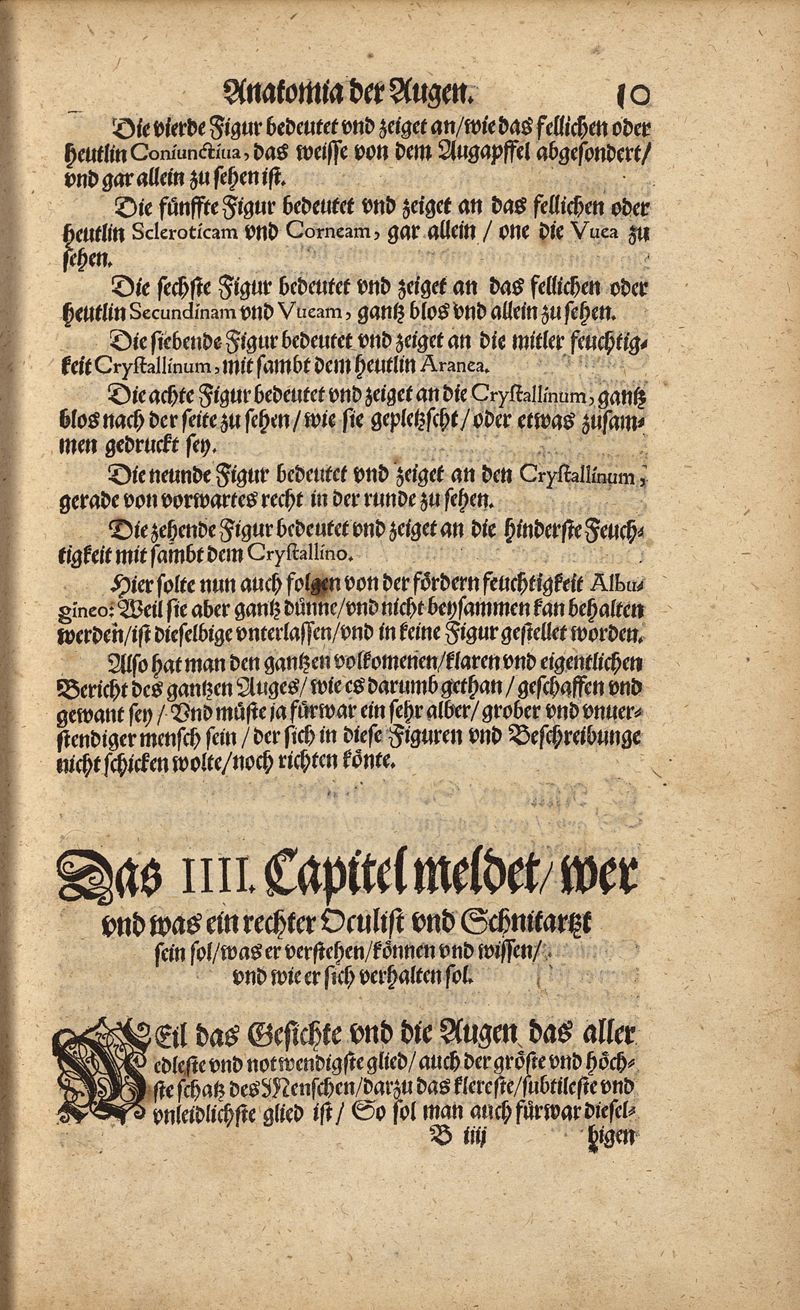 Anatomia der Augen. 10
Die vierde Figur bedeutet vnd zeiget an/wie das fellichen oder
heutlin Coniunctiua, das weisse von dem Augapffel abgesondert/
vnd gar allein zu sehen ist.
Die fünffte Figur bedeutet vnd zeiget an das fellichen oder
heutlin Scleroticam vnd Corneam, gar allein / one die Vuea zu
sehen.
Die sechste Figur bedeutet vnd zeiget an das fellichen oder
heutlin Secundinam vnd Vueam, gantz blos vnd allein zu sehen.
Die siebende Figur bedeutet vnd zeiget an die mitler feuchtig-
keit Crystallinum, mit sambt dem heutlin Aranea.
Die achte Figur bedeutet vnd zeiget an die Crystallinum, gantz
blos nach der seite zu sehen / wie sie gepletzscht / oder etwas zusam-
men gedruckt sey.
Die neunde Figur bedeutet vnd zeiget an den Crystallinum,
gerade von vorwartes recht in der runde zu sehen.
Die zehende Figur bedeutet vnd zeiget an die hinderste Feuch-
tigkeit mit sambt dem Crystallino.
Hier solte nun auch folgen von der fördern feuchtigkeit Albu-
gineo: Weil sie aber gantz dünne/vnd nicht beysammen kan behalten
werden/ist dieselbige vnterlassen/vnd in keine Figur gestellet worden.
Also hat man den gantzen volkomenen/klaren vnd eigentlichen
Bericht des gantzen Auges/ wie es darumb gethan / geschaffen vnd
gewant sey / Vnd müste ja fürwar ein sehr alber/ grober vnd vnuer-
stendiger mensch sein / der sich in diese Figuren vnd Beschreibunge
nicht schicken wolte/noch richten könte.
Das IIII. Capitel meldet/ wer
vnd was ein rechter Oculist vnd Schnitartzt
sein sol/was er verstehen/können vnd wissen/
vnd wie er sich verhalten sol.
WEil das Gesichte vnd die Augen das aller
edleste vnd notwendigste glied/ auch der gröste vnd höch-
ste schatz des Menschen/darzu das klereste/subtileste vnd
vnleidlichste glied ist/ So sol man auch fürwar diesel-
B iiij higen